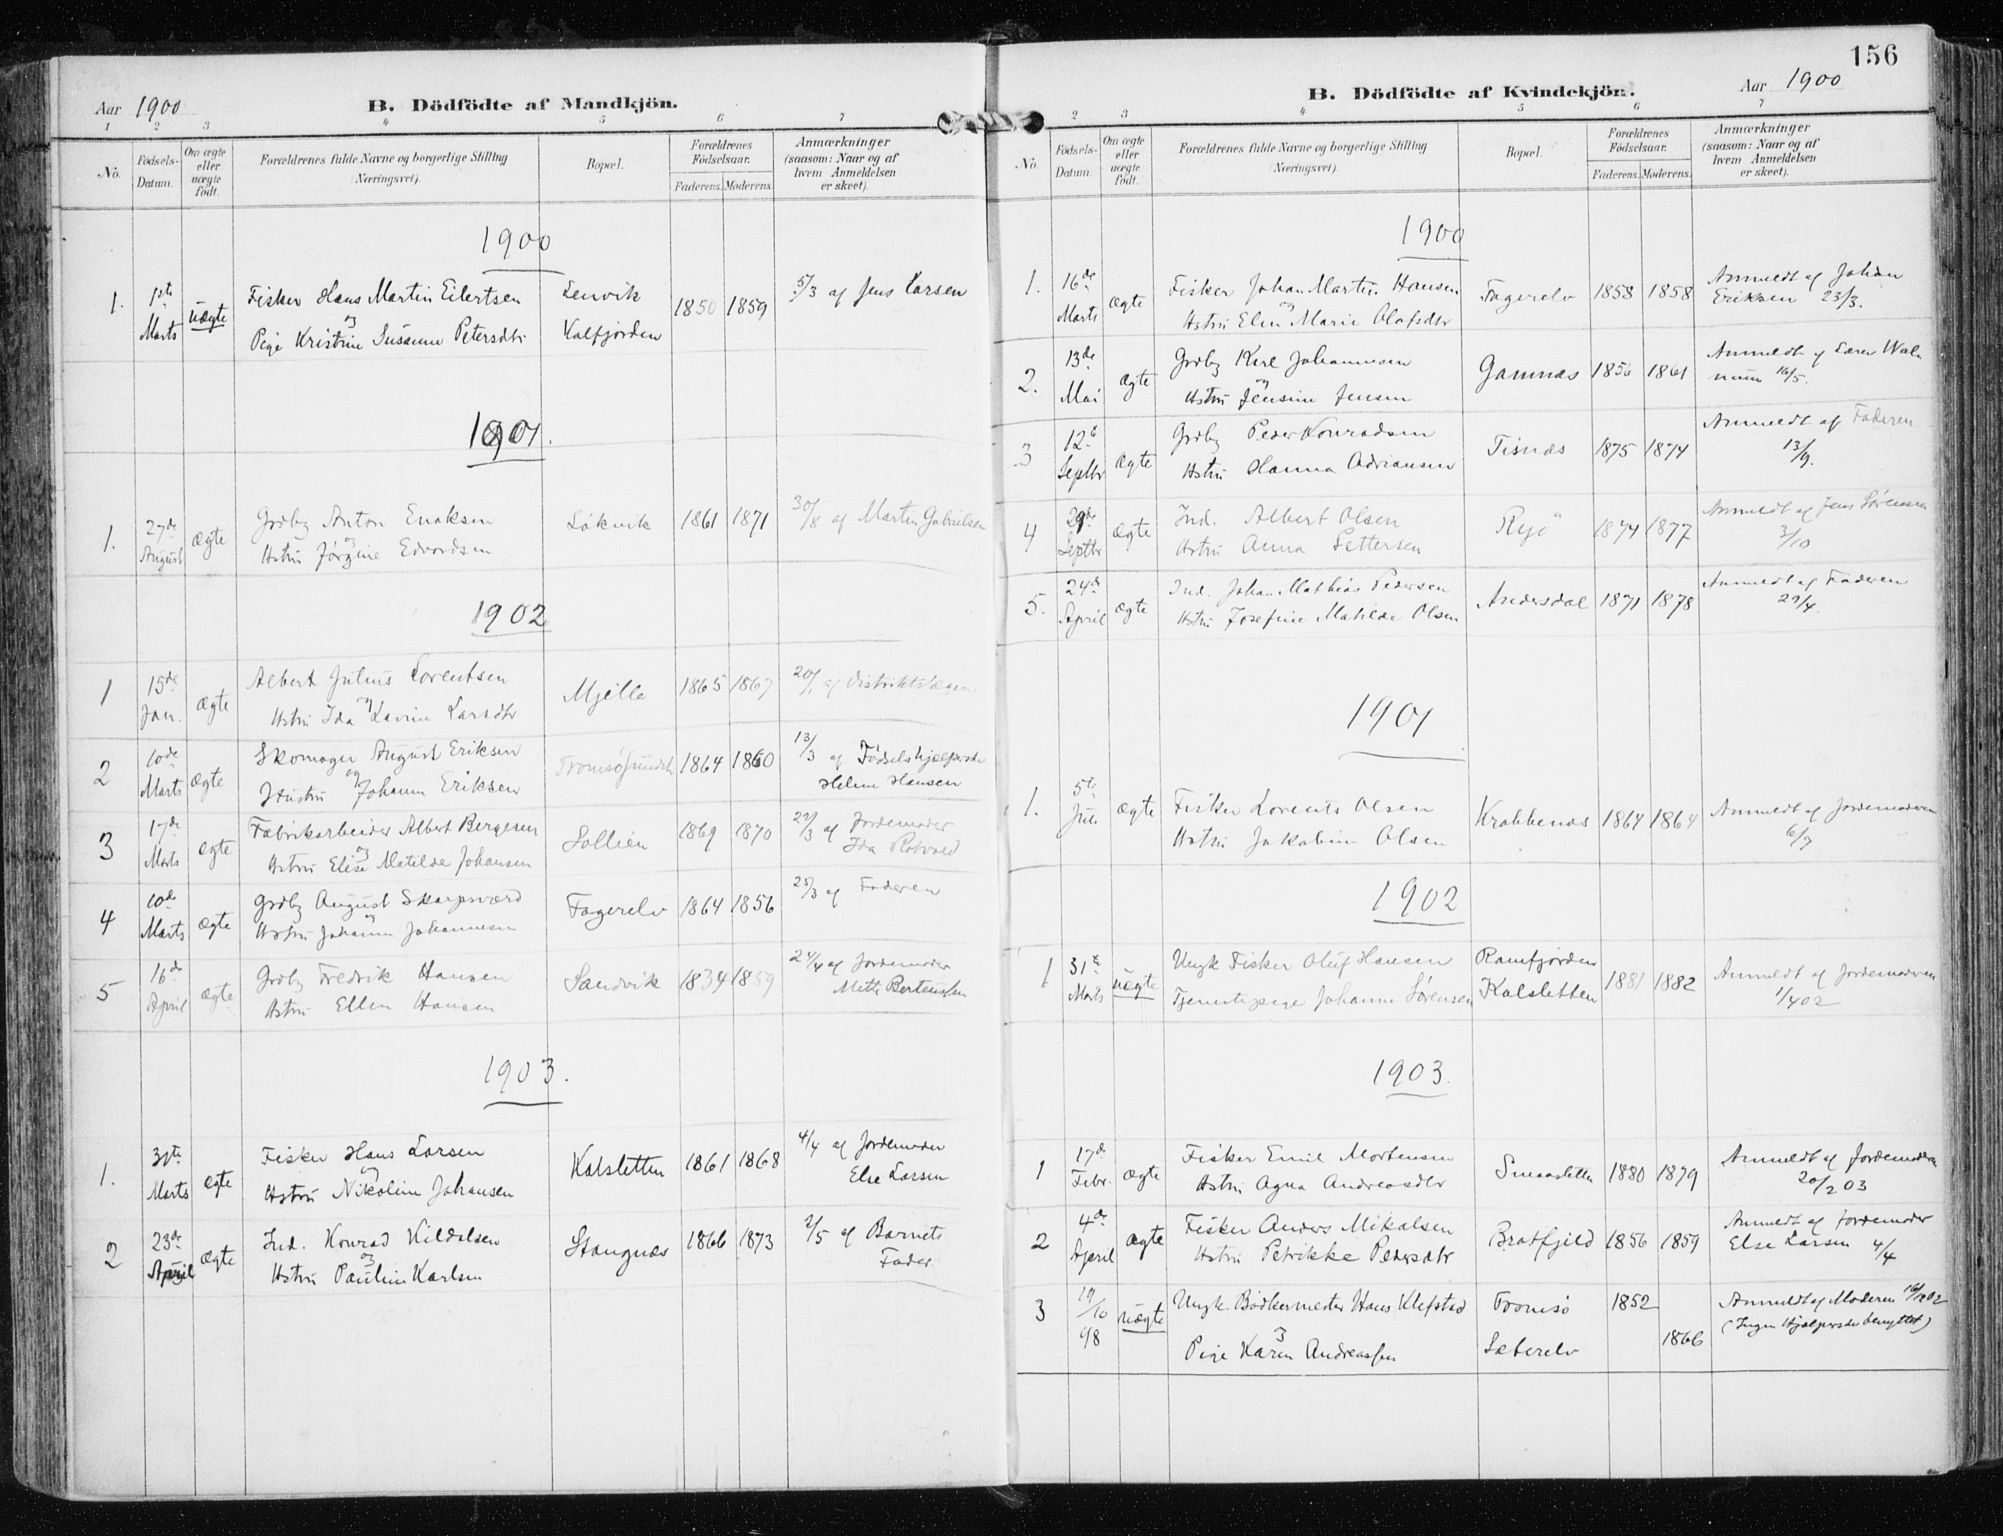 156
Aar 1900
B. Dödfödte af Mandkjön.
1 2 3 4 5 6 7
No.
Födsels-Datum.
Om ægte eller uægte födt.
Forældrenes fulde Navne og borgerlige Stilling (Næringsvei).
Bopæl.
Forældrenes Födselsaar.
Faderens. Moderens.
Anmærkninger (saasom: Naar og af hvem Anmeldelsen er skeet).
1900
1. 1ste Marts uægte Fisker Hans Martin Eilertsen Lenvik 1850 1859 5/3 af Jens Larsen
og
Pige Kristine Susanne Petersdtr Kalfjorden
1901.
1. 27de August ægte Grdbg Anton Enoksen Løkvik 1861 1871 30/8 af Martin Gabrielsen
og
Hstru Jørgine Edvardsen
1902
1 15de Jan. ægte Albert Julius Lorentsen Mjelle 1865 1867 20/1 af Distriktslægen
og
Hstru Ida Lavine Larsdtr
2 10de Marts ægte Skomager August Eriksen 1864 1860 13/3 af Födselshjælperske
og Helene Hansen
Hustru Johanna Eriksen
3 17de Marts ægte Fabrikarbeider Albert Bergesen Sollien 1869 1870 22/3 af Jordemoder
og Ida
Hstru Elise Matilde Johansen
4 10de Marts ægte Grdbg August Skarpsværd Fagerelv 1864 1856 25/3 af Faderen
og
Hstru Johanna Johannesen
5 16de April ægte Grdbg Fredrik Hansen Sandvik 1834 1859 24/4 af Jordemoder
Hstru Ellen Hansen Meth Bertenssen
1903.
1. 31te Marts ægte Fisker Hans Larsen Kalsletten 1861 1868 4/4 af Jordemoder
og Else Larsen
Hstru Nikoline Johansen
2 23de April ægte Ind. Konrad Kildalsen Stangnæs 1866 1873 2/5 af Barnets
og Fader.
Hstru Pauline Karlsen
Aar 1900
B. Dödfödte af Kvindekjön.
2 3 4 5 6 7
No.
Födsels-Datum.
Om ægte eller uægte födt.
Forældrenes fulde Navne og borgerlige Stilling (Næringsvei).
Bopæl.
Forældrenes Födselsaar.
Faderens. Moderens.
Anmærkninger (saasom: Naar og af hvem Anmeldelsen er skeet).
1900
1. 16de Marts ægte Fisker Johan Martin Hansen Fagerelv 1858 1858 Anmeldt af Johan
og Eriksen 23/3.
Hstru Elen Marie Olafsdtr
2. 13de Mai ægte Grdbg Karl Johannesen Gamnæs 1856 1861 Anmeldt af Lærer Wal
og num 16/5.
Hstru Jensine Jensen
3 12te Septbr ægte Grdbg Peder Konradsen Tisnæs 1875 1874 Anmeldt af Faderen
Hstru Hanna Adriansen 13/9.
4 29de Septbr ægte Ind. Albert Olsen Ryö 1874 1877 Anmeldt af Jens Sørensen
Hstru Anna Pettersen 3/10
5. 24de April ægte Ind. Johan Mathias Pedersen Andersdal 1871 1878 Anmeldt af Faderen
Hstru Josefine Matilde Olsen 29/4.
1901
1. 5te Juli ægte Fisker Lorents Olsen Krabbenæs 1864 1864 Anmeldt af Jordemoderen
Hstru Jakobine Olsen 6/7
1902
1 31te Marts uægte Ungk. Fisker Oluf Hansen Ramfjorden 1881 1882 Anmeldt af Jordemoderen
Tjenestepige Johanne Sørensen Kalsletten 1/4 02
1903.
1 17de Febr. ægte Fisker Emil Mortensen Smaasletten 1880 1879 Anmeldt af Jordemoderen
Hstru Agna Andreasdtr 20/2 03
2 4de April ægte Fisker Anders Mikalsen Bratfjeld 1856 1859 Anmeldt af Jordemoder
Hstru Petrikke Pedersdtr Else Larsen 4/4
3 19/10 98 uægte Ungk. Bødkermester Hans Klefstad Tromsø 1852 Anmeldt af Moderen
og (Ingen Hjælperske benyttet)
Pige Karen Andreassen Sæterelv 1866